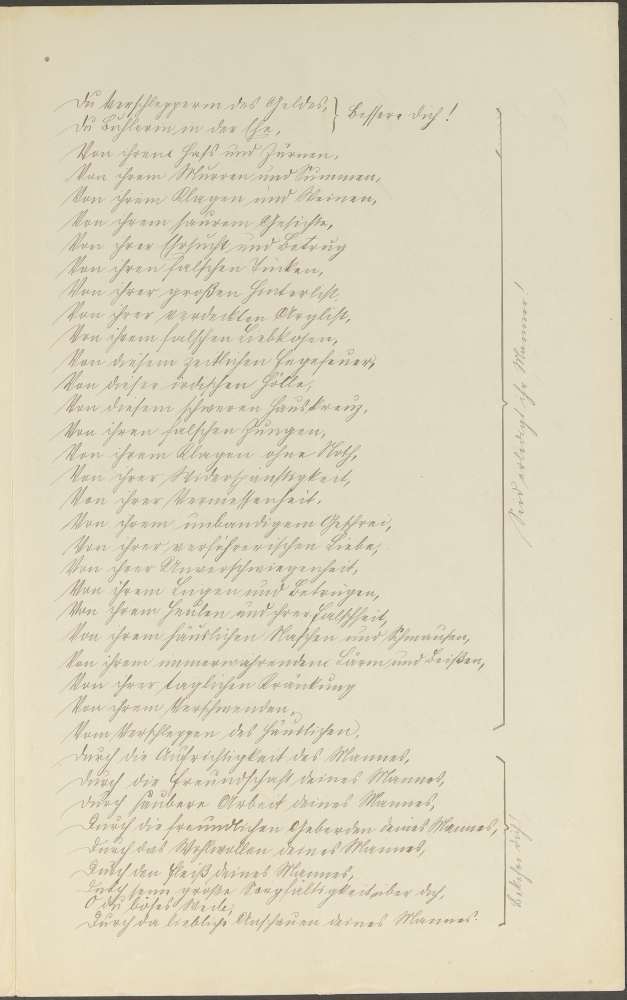 Du Verschlepperin des Geldes, } Bessere dich!
Du Buhlerin in der Ehe,
Von ihrem Haß und Zürnen,
Von ihrem Murren und Summen,
Von ihrem Klagen und Weinen,
Von ihrem saurem Gesichte,
Von ihrer Ehrsucht und Betrug
Von ihren falschen Tücken,
Von ihrer großen Hinterlist,
Von ihrer verdeckten Arglist,
Von ihrem falschen Liebkosen,
Von diesem zeitlichen Fegefeuer,
Von dieser irdischen Hölle,
Von diesem schweren Hauskreuz,
Von ihren falschen Zungen,
Von ihrem Klagen ohne Noth,
Von ihrer Widerspänstigkeit,
Von ihrer Vermessenheit,
Von ihrem unbandigem Geschrei,
Von ihrer verführerischen Liebe,
Von ihrer Unverschwiegenheit,
Von ihrem Lügen und Betrügen,
Von ihrem Heulen und ihrer Falschheit,
Von ihrem häuslichen Naschen und Schmausen,
Von ihrem immerwährendem Lärm und Beißen,
Von ihrer täglichen Kränkung
Von ihrem Verschwenden,
Vom Verschleppen des Häuslichen,
Sind erledigt ihr Männer!
Durch die Aufrichtigkeit des Mannes,
Durch die Freundschaft deines Mannes,
Durch saubere Arbeit deines Mannes,
Durch die freundlichen Geberden deines Mannes,
Durch das Wohlwollen deines Mannes,
Durch den Fleiß deines Mannes,
Durch seine große Sorgfältigkeit über dich,
O du böses Weib,
Durch da liebliche Anschauen deines Mannes.
Bekehre dich!